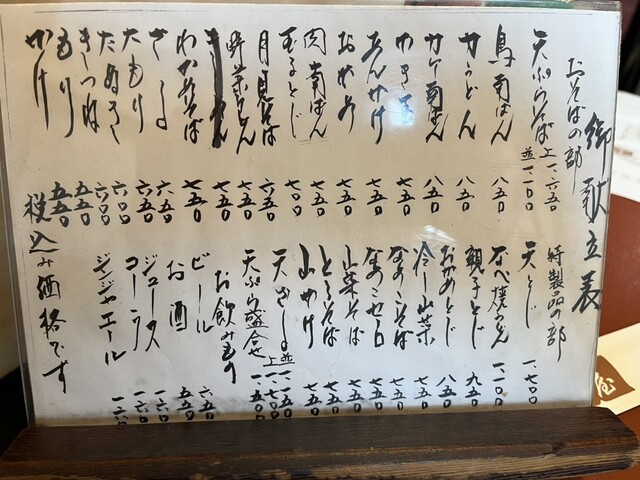 御献立表
おそばの部
天ぷらそば 上 一、六五〇 並 一、一〇〇
鳥南ばん 八五〇
カツどん 八五〇
カレー南ばん 八五〇
七五〇
あんかけ 七五〇
おかめ 七五〇
肉南ばん 七五〇
玉子とじ 七〇〇
月見そば 六五〇
野菜うどん 七五〇
七五〇
わかめそば 七五〇
ざる 六五〇
大もり 六五〇
たぬき 六〇〇
きつね 六〇〇
もり 五五〇
かけ 五五〇
特製品の部
天とじ 一、七〇〇
なべ焼うどん 一、一〇〇
親子とじ 九五〇
おかめとじ 八五〇
冷し山菜 七五〇
なめこそば 七五〇
七五〇
山菜そば 七五〇
とろろそば 七五〇
山かけ 七五〇
天ざる 並 一、一五〇
天ぷら盛合せ 一、五〇〇
お飲みもの
ビール 六五〇
お酒 五五〇
ジュース 一六〇
コーラ 一六〇
ジンジャエール 一六〇
税込み価格です